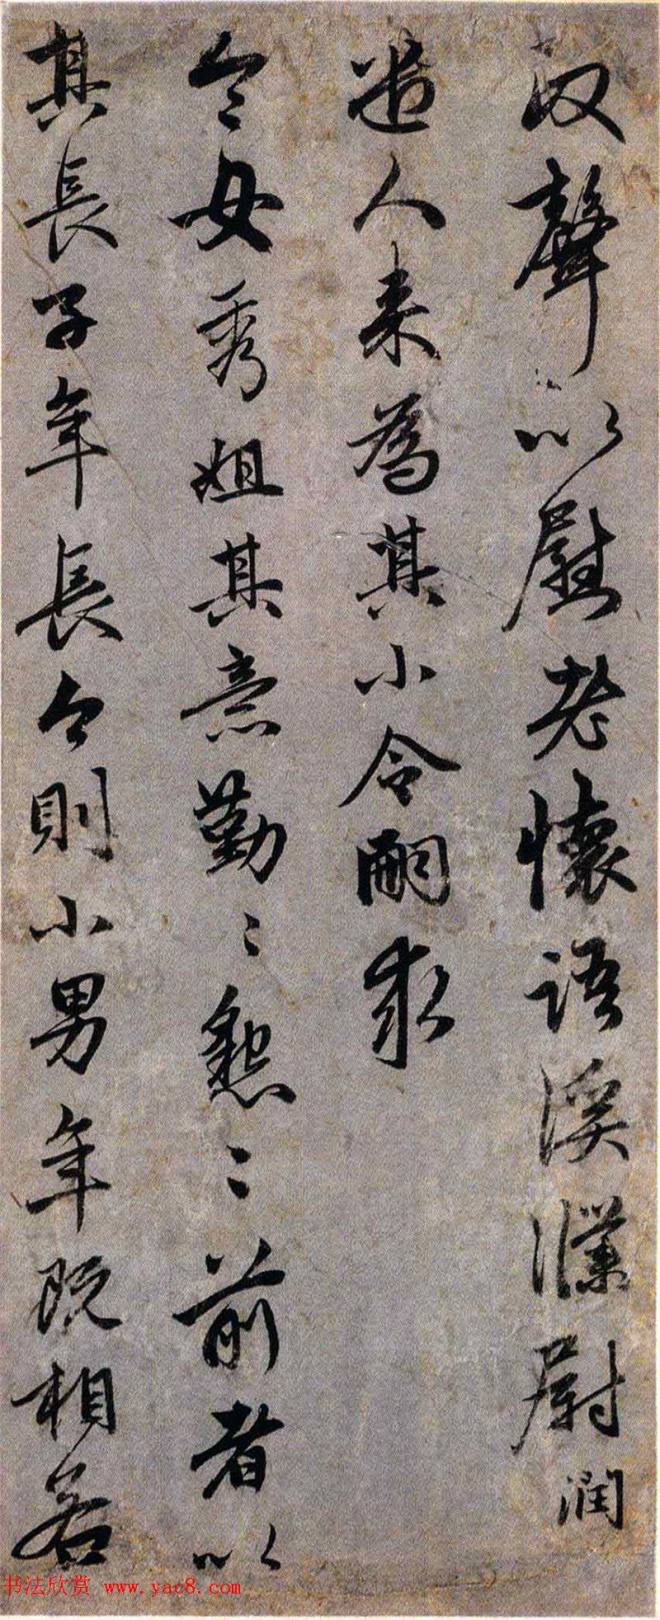 收聲以慰老懷語溪濮尉潤
遣人來為其小令嗣求
令女秀姐其意勤〻懇〻前者以
其長子年長今則小男年既相若
书法欣赏 www.yac8.com